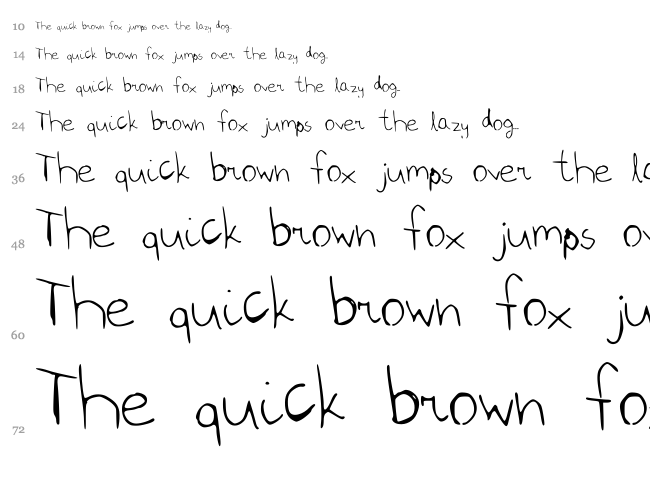 10 The quick brown fox jumps over the lazy dog.
14 The quick brown fox jumps over the lazy dog.
18 The quick brown fox jumps over the lazy dog.
24 The quick brown fox jumps over the lazy dog.
36 The quick brown fox jumps over the la
48 The quick brown fox jumps ov
60 The quick brown fox ju
72 The quick brown fo